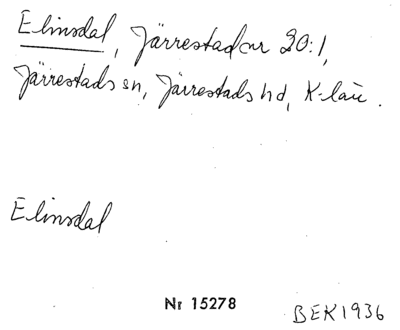 Elinsdal, Järrestad nr 20:1,
Järrestads sn, Järrestads hd, K-län.
Elinsdal
Nr 15278
BEK1936